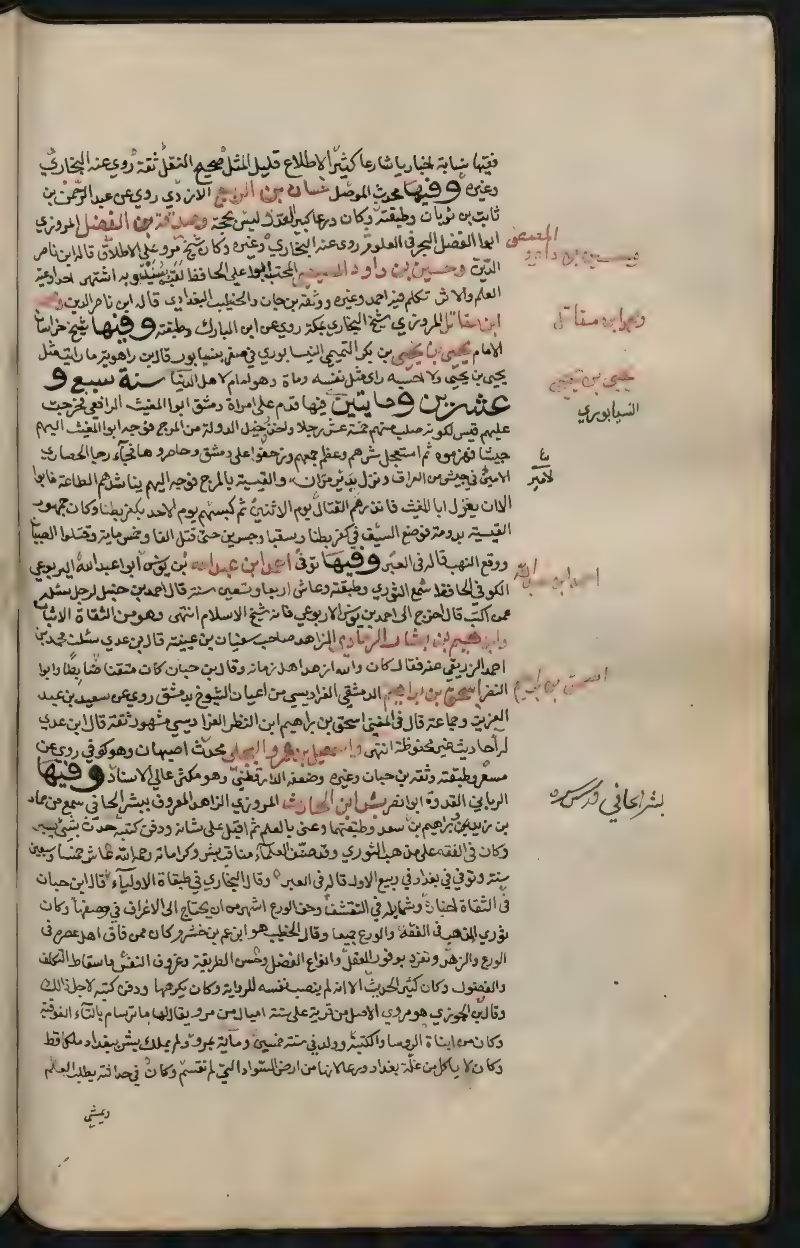 فقيها نسابة اخباريا شاعرا كثير الاطلاع قليل المثل صحيح النقل ثقة روي عنه البخاري
وغيره وفيها محدث الموصل غسان بن الربيع الازدي روي عن عبد الرحمن بن
ثابت بن ثوبان وطبقته وكان ورعا كبير القدر ليس بحجة وصدقة بن الفضل المروزي
ابوا الفضل البحر في العلوم روي عنه البخاري وغيره وكان شيخ مرو على الاطلاق قاله ابن ناصر
الدين وحسين بن داود المصيصي المحتسب ابوا علي الحافظ لقبه سنيد وبه اشتهر احد اوعية
العلم والاثر تكلم فيه احمد وغيره ووثقه بن حبان والخطيب البغدادي قاله ابن ناصر الدين ومحمد
ابن مقاتل المروزي شيخ البخاري بمكة روي عن ابن المبارك وطبقته وفيها شيخ خراسان
الامام يحيى بن يحيى بن بكر التميمي النيسابوري في صفر بنيسابور قال بن راهويه ما رايت مثل
يحيى بن يحيى ولا احسبه راى مثل نفسه ومات وهو امام لاهل الدنيا سنة سبع و
عشرين ومايتين فيها قدم على امراة دمشق ابوا المغيث الرافعي فخرجت
عليهم قيس لكونه صلب منهم خمسة عشر رجلا واخذوا خيل الدولة من المرج فوجه ابوا المغيث اليهم
جيشا فهزموه ثم استفحل شرهم وعظم جمعهم وزحفوا على دمشق وحاصروها فجآء رجا الحصاري
الامير في جيش من العراق ونزل بدير مران والقيسية بالمرج فوجه اليهم يناشدهم الطاعة فابوا
الا ان يعزل ابا المغيث فانذرهم القتال يوم الاثنين ثم كبسهم يوم الاحد بكفر بطنا وكان جمهور
القيسية بدومة فوضع السيف في كفر بطنا وسقبا وجسرين حتى قتل الفا وخمس ماية وقتلوا الصبيان
ووقع النهب قاله في العبر وفيها توفى احمد ابن عبد الله بن يونس ابوا عبد الله اليربوعي
الكوفي الحافظ سمع الثوري وطبقته وعاش اربعا وتسعين سنة قال احمد بن حنبل لرجل سئله
عمن اكتب قال اخرج الى احمد بن يونس اليربوعي فانه شيخ الاسلام انتهى وهو من الثقاة الاثبات
وابراهيم بن بشار الرمادي الزاهد صاحب سفيان بن عيينة قال بن عدي سئلت محمد بن
احمد الزريقي عنه فقال كان والله ازهد اهل زمانه وقال بن حبان كان متقنا ضابطا وابوا
النضر اسحق بن ابراهيم الدمشقي الفراديسي من اعيان الشيوخ بدمشق روي عن سعيد بن عبد
العزيز وجماعة قال في المغني اسحق بن ابراهيم ابن النظر الفراديسي مشهور ثقة قال ابن عدي
له أحاديث غير محفوظة انتهى واسمعيل بن عمرو البجلي محدث اصبهان وهو كوفي روي عن
مسعر وطبقته وثقه بن حبان وغيره وضعفه الدارقطني وهو مكثر عالي الاسناد وفيها
الرباني القدوة ابوا نصر بشر ابن الحارث المروزي الزاهد المعروف ببشر الحافي سمع من حماد
بن زيد وابراهيم بن سعد وطبقتهما وعني بالعلم ثم اقبل على شانه ودفن كتبه حدث بشئ يسير
وكان في الفقه على مذهب الثوري وقد صنف العلمآء مناقب بشر وكراماته رحمه الله عاش خمسا وسبعين
سنة وتوفي في بغداد في ربيع الاول قاله في العبر وقال البخاري في طبقاة الاوليآء قال ابن حبان
في الثقاة اخباره وشمايله في التقشف وخفي الورع اشهر من ان يحتاج الى الاغراق في وصفها وكان
ثوري المذهب في الفقه والورع جميعا وقال الخطيب هو ابن عم بن خشرم وكان ممن فاق اهل عصره في
الورع والزهد وتفرد بوفور العقل وانواع الفضل وحسن الطريقة وعزوف النفس باسقاط التكلف
والفضول وكان كثير الحديث الا انه لم ينصب نفسه للرواية وكان يكرهها ودفن كتبه لاجل ذالك
وقال بن الجوزي هو مروي الاصل من قرية على ستة اميال من مرو يقال لها ماترسام بالتآء الفوقية
وكان من ابناة الروسا والكتبة وولد في سنة خمسين ومأية بمرو ولم يملك بشر ببغداد ملكا قط
وكان لا ياكل من غلة بغداد ورعا لانها من ارض السواد التي لم تقسم وكان في حداثته يطلب العلم
ويمشي
المصيصي
حسين بن داود
ومحمد ابن مقاتل
يحيى بن يحيى
النيسابوري
الامير
احمد ابن عبد الله
اسحق بن ابراهيم
بشر الحافي قدس سره